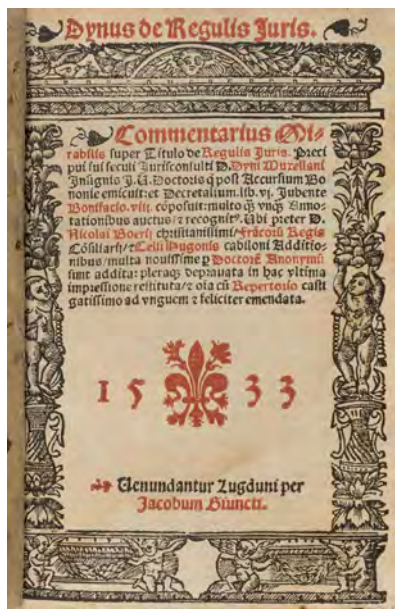 Dynus de Regulis Juris.
Commentarius Mi-
rabilis super Titulo de Regulis Juris. Preci
pui sui seculi Jurisconsulti D. Dyni Muxellani
Insignis J. U. Doctoris q post Accursium Bo
nonie emicuit: et Decretalium. lib. vj. Jubente
Bonifacio. viii. cōposuit: multo q̄ vnq̄ Anno-
tationibus auctus / ⁊ recognitꝰ. Ubi preter D.
Nicolai Boerij christianissimi / Frācorū Regis
Cōsiliarij / ⁊ Celsi Hugonis cabiloni Additio-
nibus / multa nouissime ꝑ Doctorē Anonymū
sunt addita: pleraq; deprauata in hac vltima
impressione restituta / ⁊ oīa cū Repertorio casti
gatissimo ad vnguem ⁊ feliciter emendata.
15 33
Venundantur Lugduni per
Jacobum Giuncti.